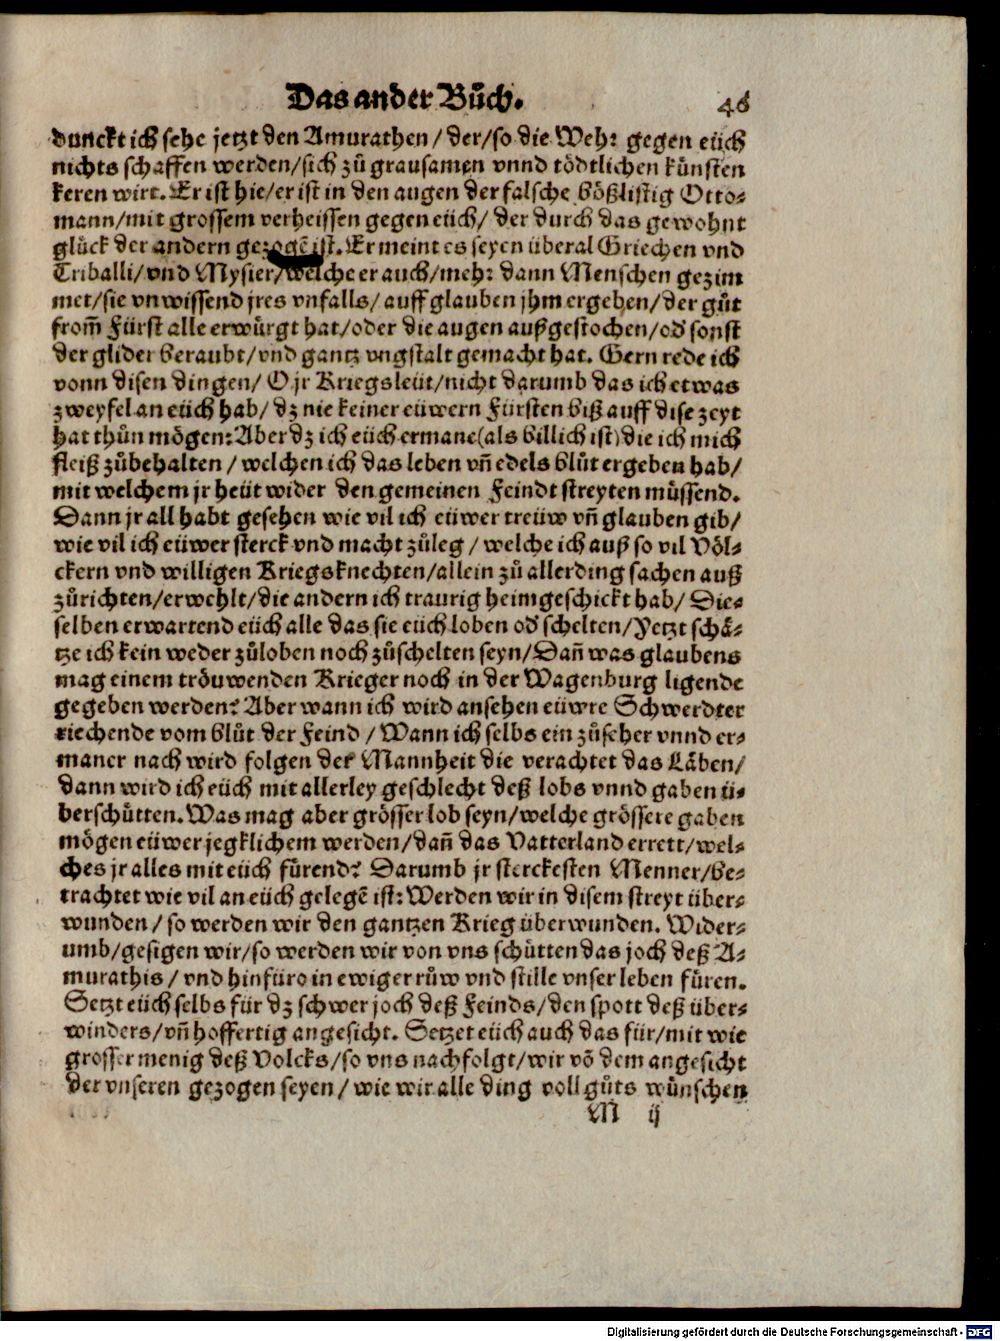 Das ander Bůch. 46
dunckt ich sehe jetzt den Amurathen / der/so die Wehr gegen eüch
nichts schaffen werden/sich zů grausamen vnnd tödtlichen künsten
keren wirt. Er ist hie/er ist in den augen der falsche bößlistig Otto-
mann/mit grossem verheissen gegen eüch/ der durch das gewohnt
glück der andern gezogē ist. Er meint es seyen überal Griechen vnd
Triballi/vnd Mysier/welche er auch/mehr dann Menschen gezim
met/sie vnwissend jres vnfalls/ auff glauben jhm ergeben/der gůt
from̃ Fürst alle erwürgt hat/oder die augen außgestochen/od' sonst
der glider beraubt/vnd gantz vngstalt gemacht hat. Gern rede ich
vonn disen dingen/ O jr Kriegsleüt/nicht darumb das ich etwas
zweyfel an eüch hab/ dz nie keiner eüwern Fürsten biß auff dise zeyt
hat thůn mögen: Aber dz ich eüch ermane(als billich ist)die ich mich
fleiß zůbehalten / welchen ich das leben vñ edels blůt ergeben hab/
mit welchem jr heüt wider den gemeinen Feindt streyten müssend.
Dann jr all habt gesehen wie vil ich eüwer treüw vñ glauben gib/
wie vil ich eüwer sterck vnd macht zůleg / welche ich auß so vil Völ-
ckern vnd willigen Kriegsknechten/allein zů allerding sachen auß
zůrichten/erwehlt/die andern ich traurig heimgeschickt hab/ Die-
selben erwartend eüch alle das sie eüch loben od' schelten/Yetzt schä-
tze ich kein weder zůloben noch zůschelten seyn/Dañ was glaubens
mag einem tröuwenden Krieger noch in der Wagenburg ligende
gegeben werden? Aber wann ich wird ansehen eüwre Schwerdter
riechende vom blůt der Feind / Wann ich selbs ein zůseher vnnd er-
maner nach wird folgen der Mannheit die verachtet das Läben/
dann wird ich eüch mit allerley geschlecht deß lobs vnnd gaben ü-
berschütten. Was mag aber grösser lob seyn/welche grössere gaben
mögen eüwer jegklichem werden/dañ das Vatterland errett/wel-
ches jr alles mit eüch fürend? Darumb jr sterckesten Menner/be-
trachtet wie vil an eüch gelegē ist: Werden wir in disem streyt über-
wunden / so werden wir den gantzen Krieg überwunden. Wider-
umb/gesigen wir/so werden wir von vns schütten das joch deß A-
murathis / vnd hinfüro in ewiger růw vnd stille vnser leben füren.
Setzt eüch selbs für dz schwer joch deß Feinds/den spott deß über-
winders/vñ hoffertig angesicht. Setzet eüch auch das für/mit wie
grosser menig deß Volcks/so vns nachfolgt/wir vō dem angesicht
der vnseren gezogen seyen / wie wir alle ding voll gůts wünschen
M ij
Digitalisierung gefördert durch die Deutsche Forschungsgemeinschaft - DFG